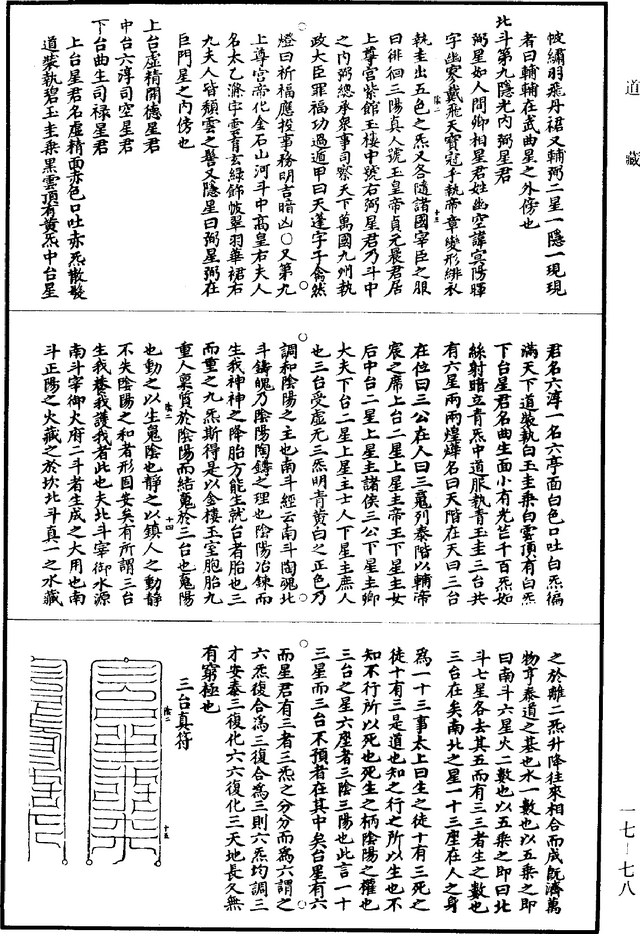 道藏
帔繡羽飛丹裙又輔弼二星一隱一現現
者曰輔輔在武曲星之外傍也
北斗第九隱光內弼星君
弼星如人間卿相星君姓幽空諱冥陽暉
字幽寥戴飛天寶冠手執帝章變形緋衣
執圭出五色之炁又各隨諸國宰臣之服
曰徘徊三陽真人號玉皇帝貞元晨君居
上尊宮紫館玉樓中號右弼星君乃斗中
之內弼總承衆事司察天下萬國九州執
政大臣罪福功過遁甲曰天蓬字子禽然
燈曰祈福應投事務明吉暗凶〇又第九
上尊宮帝化金石山河斗中高皇右夫人
名太乙滌字雲育玄綠飾帔翠羽華裙右
九夫人皆頹雲之髻又隱星曰弼星弼在
巨門星之內傍也
上台虛精開德星君
中台六淳司空星君
下台曲生司祿星君
上台星君名虛精面赤色口吐赤炁散髮
道裝執碧玉圭乘黑雲頂有黃炁中台星
君名六淳一名六亭面白色口吐白炁徧
滿天下道裝執白玉圭乘白雲頂有白炁
下台星君名曲生面小有光芒千百炁如
絲射暗立青炁中道服執青玉圭三台共
有六星兩兩煌煒名曰天階在天曰三台
在位曰三公在人曰三䰟列泰階以輔帝
宸之席上台二星上星主帝王下星主女
后中台二星上星主諸侯三公下星主卿
大夫下台二星上星主士人下星主庶人
也三台受虛无三炁明青黃白之正色乃
調和陰陽之主也南斗經云南斗陶䰟北
斗鑄魄乃陰陽陶鑄之理也陰陽冶鍊而
生我神神之降胎方能生就台者胎也三
而重之九炁斯得是以金樓玉室胞胎九
重人稟質於陰陽而結䰟於三台也䰟陽
也動之以生䰟陰也靜之以鎮人之動靜
不失陰陽之和者形固安矣有所謂三台
生我養我護我者此也夫北斗宰御水源
南斗宰御火府二斗者生成之大用也南
斗正陽之火藏之於坎北斗真一之水藏
之於離二炁升降往來相合而成旣濟萬
物亨泰道之基也水一數也以五乘之即
曰南斗六星火二數也以五乘之即曰北
斗七星各去其五而有三三者生之數也
三台在矣南北之星一十三座在人之身
為一十三事太上曰生之徒十有三死之
徒十有三是道也知之行之所以生也不
知不行所以死也死生之柄陰陽之權也
三台之星六座者三陰三陽也此言一十
三星而三台不預者在其中矣台星有六
而星君有三者三炁之分分而為六謂之
六炁復合為三復合為三則六炁均調三
才安泰三復化六六復化三天地長久無
有窮極也
三台真符
一七-七八